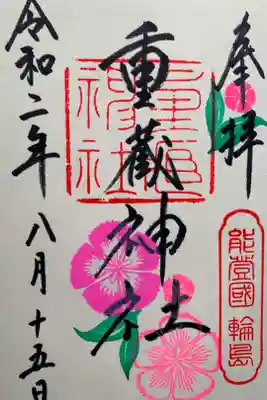 奉拝
重蔵神社
能登國 輪島
令和二年八月十五日